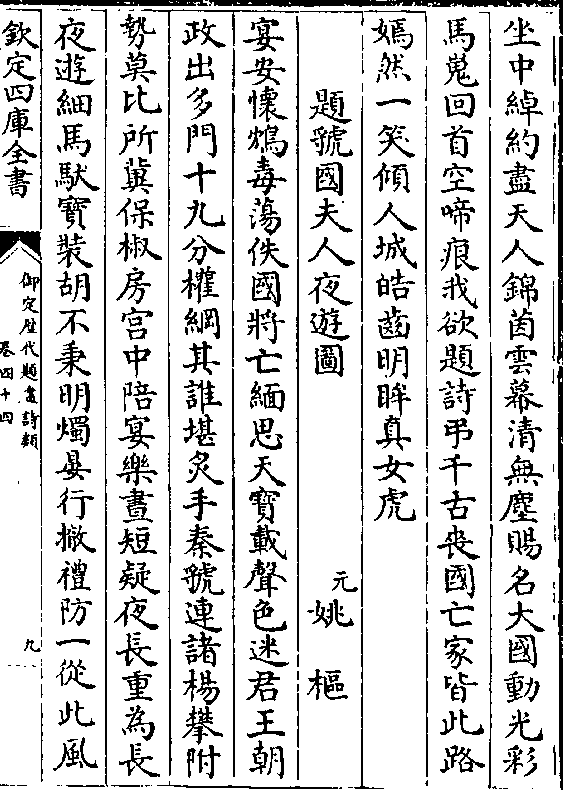 坐中綽約盡天人錦茵雲幕清無塵賜名大國動光彩
馬嵬回首空啼痕我欲題詩弔千古喪國亡家皆此路
嫣然一笑傾人城皓齒明眸真女虎
題虢國夫人夜遊圖
元姚樞
宴安懷鴆毒蕩佚國將亡緬思天寶載聲色迷君王朝
政出多門十九分權綱其誰堪炙手秦虢連諸楊攀附
勢莫比所冀保椒房宫中陪宴樂晝短疑夜長重為長
夜遊細馬馱寶裝胡不秉明燭晏行撤禮防一從此風
欽定四庫全書
御定歴代題畫詩類
卷四十四
九